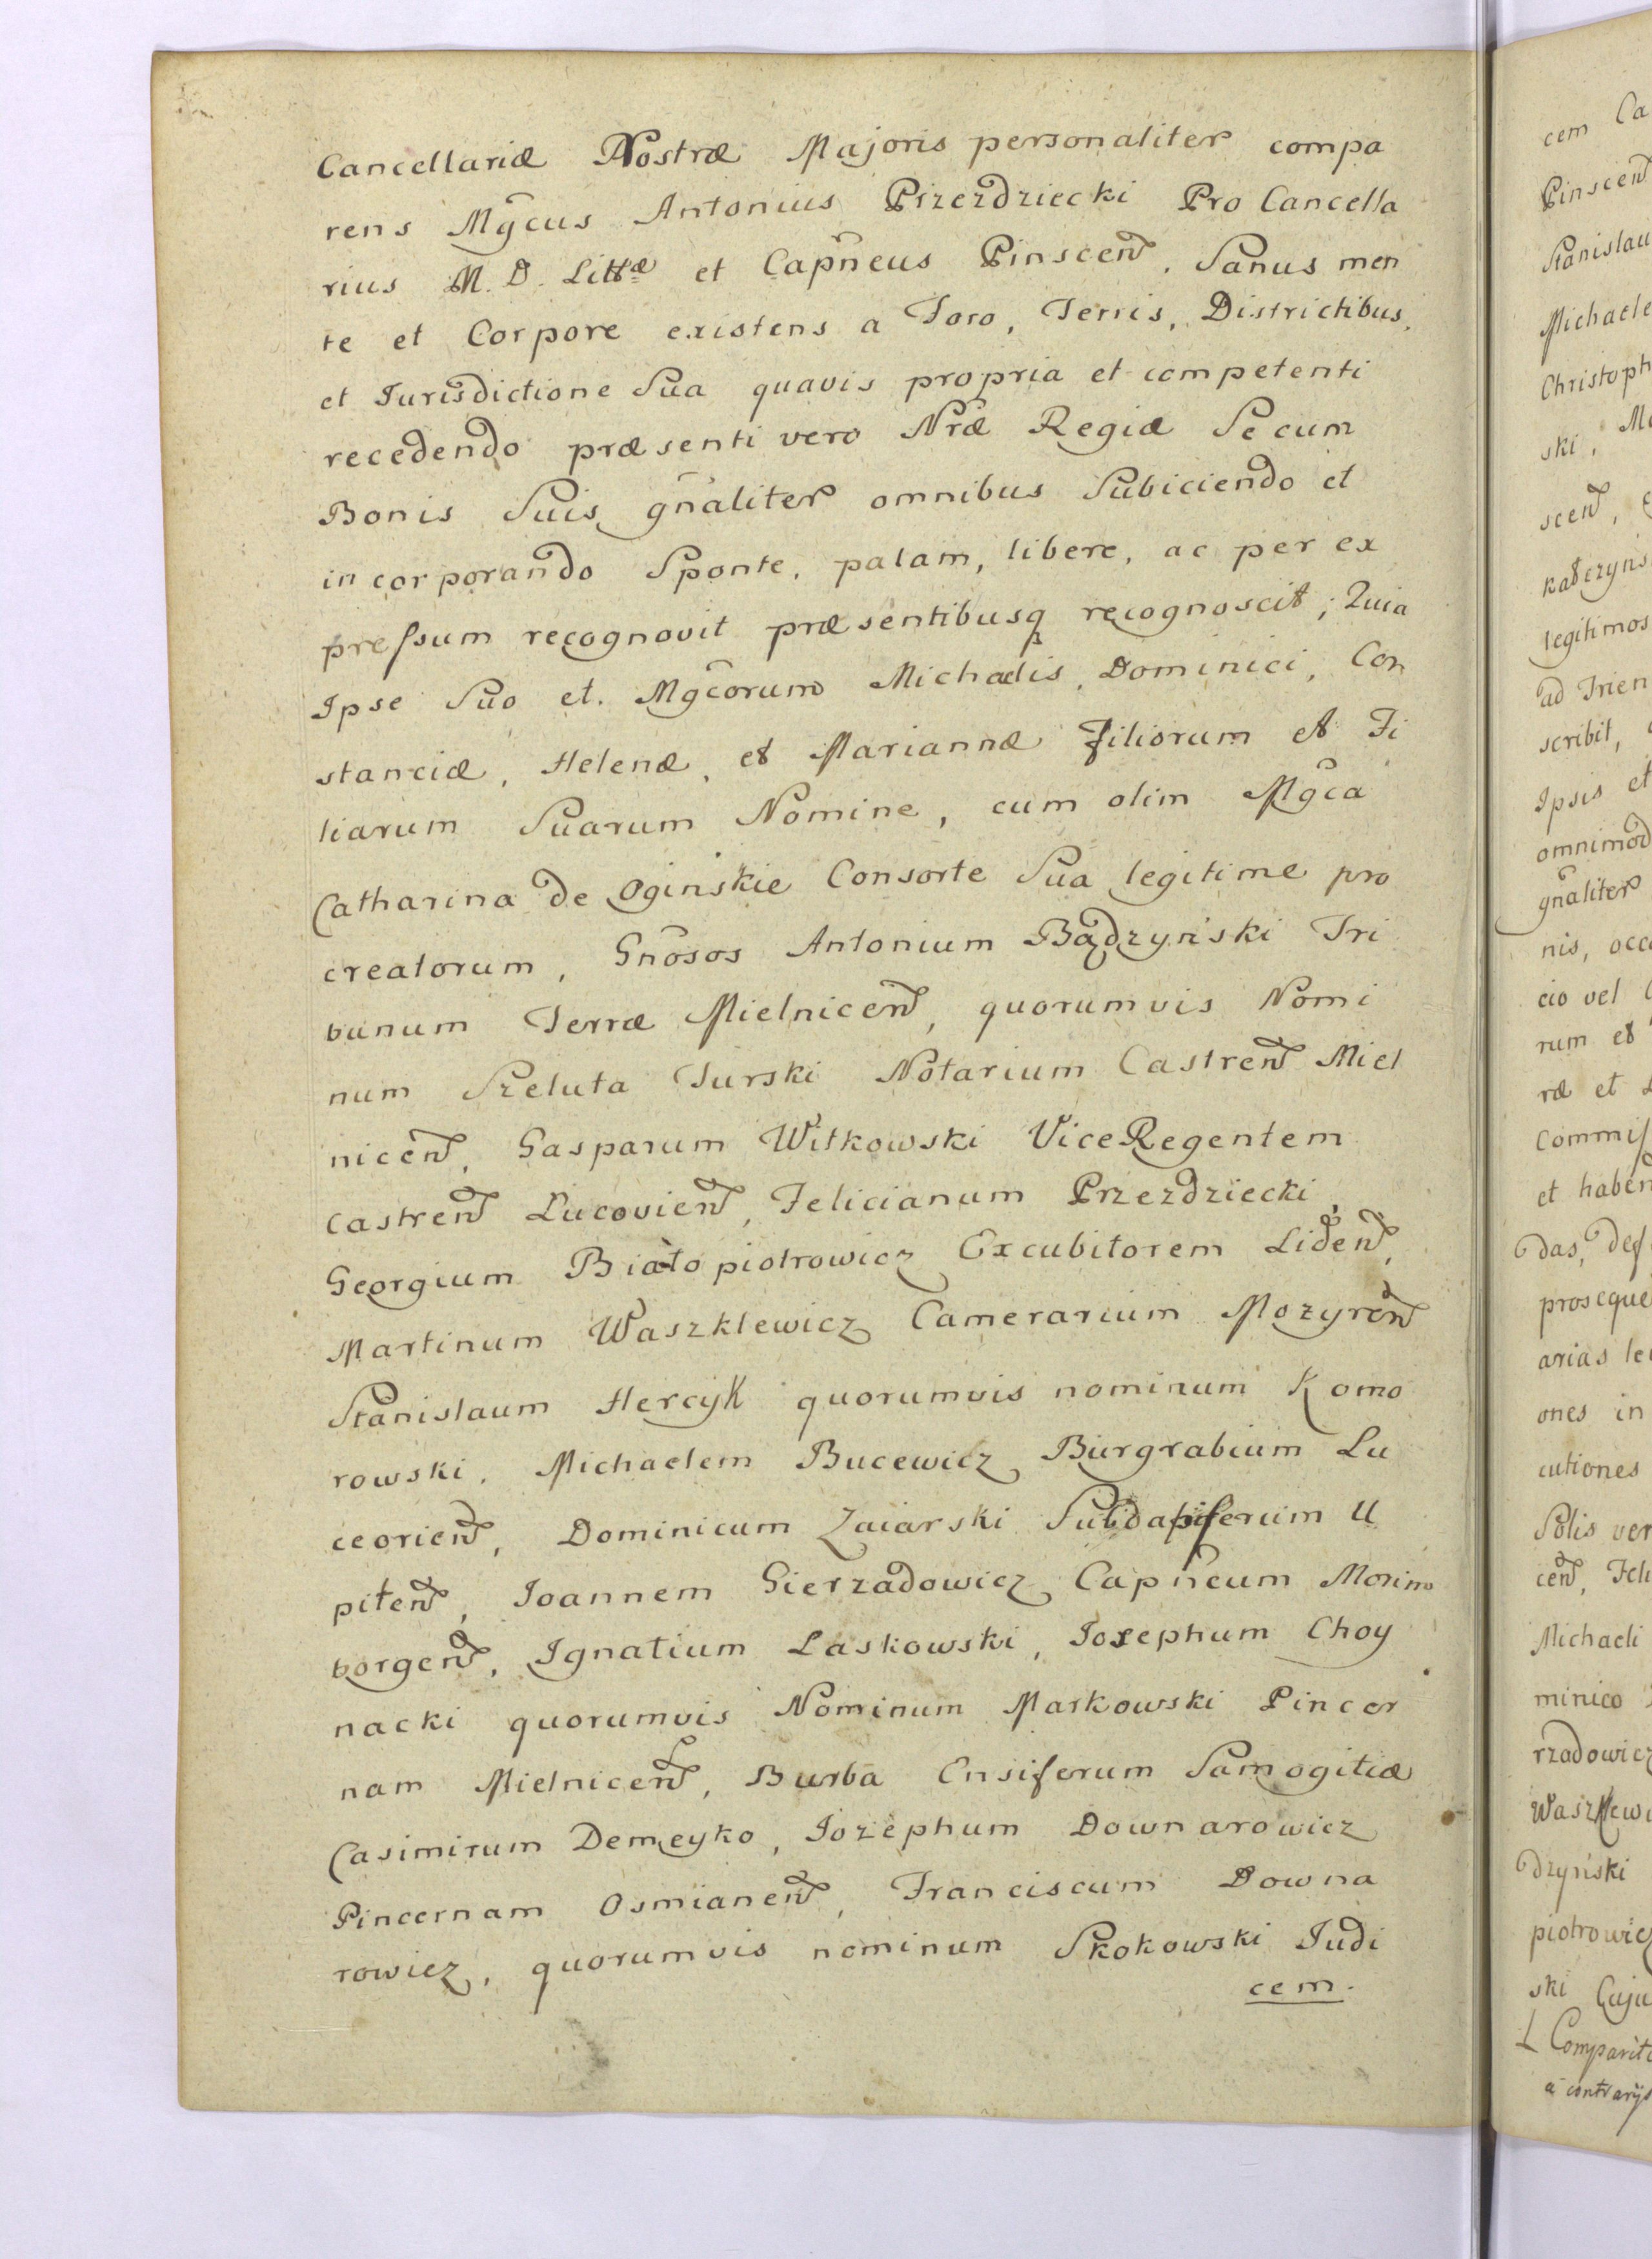 Cancellariæ Nostræ Majoris personaliter compa
rens Mgcus Antonius Przezdziecki Pro Cancella
rius M. D. Littæ et Capneus Pinscen, Sanus men
te et Corpore existens a Foro, Terris, Districtibus,
et Jurisdictione Sua quavis propria et competenti
recedendo præsenti vero Nræ Regiæ Se cum
Bonis Suis gnaliter omnibus Subiciendo et
incorporando Sponte, palam, libere, ac per ex
pressum recognovit præsentibusq recognoscit; Quia
Ipse Suo et. Mgcorum Michaelis, Dominici, Con
stanciæ, Helenæ, et Mariannæ Filiorum et Fi
liarum Suarum Nomine, cum olim Mgca
Catharina de Oginskie Consorte Sua legitime pro
creatorum, Gnosos Antonium Bądzyński Tri
bunum Terræ Mielnicen, quorumvis Nomi
num Szeluta Turski Notarium Castren Miel
nicen, Gasparum Witkowski ViceRegentem
Castren Lucovien, Felicianum Przezdziecki,
Georgium Białopiotrowicz Excubitorem Liden,
Martinum Waszklewicz Camerarium Mozyren
Stanislaum Hercyk quorumvis nominum Komo
rowski, Michaelem Bucewicz Burgrabium Lu
ceorien, Dominicum Zaiarski Subdapiferum U
piten, Joannem Gierzadowicz Capneum Morino
borgen, Ignatium Laskowski, Josephum Choy
nacki quorumvis Nominum Markowski Pincer
nam Mielnicen, Burba Ensiferum Samogitiæ
Casimirum Demeyko, Jozephum Downarowicz
Pincernam Osmianen, Franciscum Downa
rowicz, quorumvis nominum Skokowski Judi
cem.
cem Ca
Pinscen
Stanislau
Michaele
Christoph
ski, Mo
scen,
kadzyns
legitimos
ad Trien
scribit,
Ipsis et
omnimod
gnaliter
nis, occa
cio vel
rum et
ræ et
Commis
et haben
das, def
proseque
arias le
ones in
cutiones
Solis ver
cen, Feli
Michaeli
minico
rzadowicz
Waszklewi
dzyński
piotrowicz
ski Cuju
Comparit
a contrarys